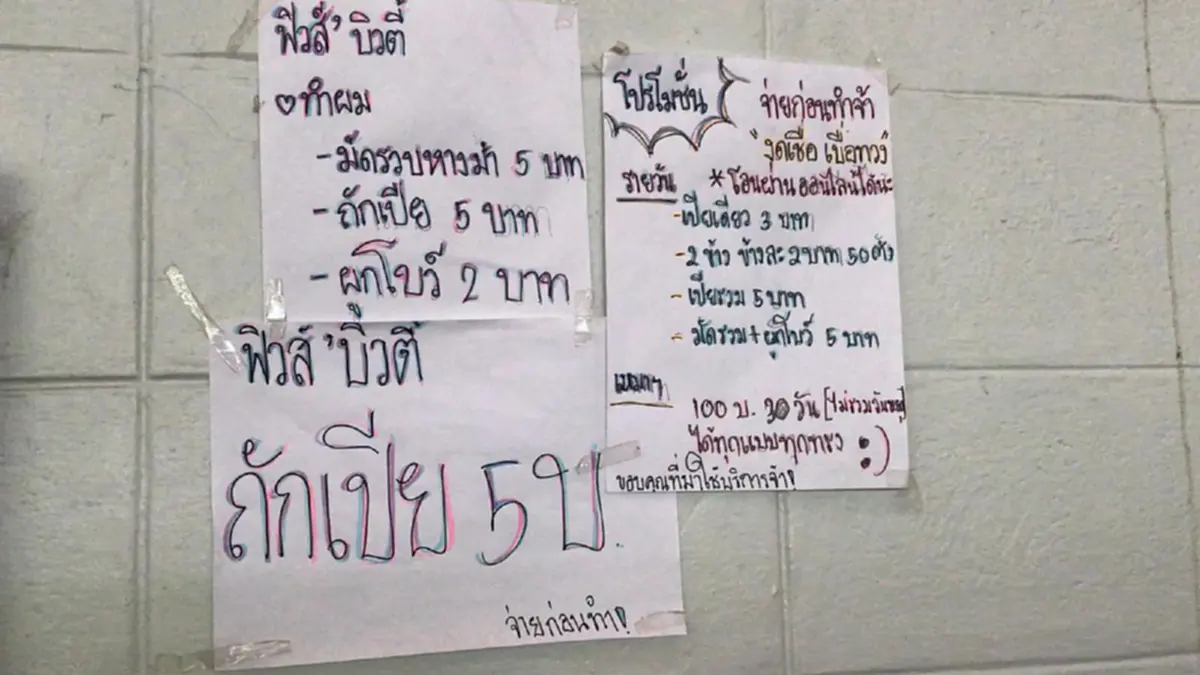 ฟิวส์'บิวตี้
♡ทำผม
- มัดรวบหางม้า 5 บาท
- ถักเปีย 5 บาท
- ผูกโบว์ 2 บาท
ฟิวส์'บิวตี้
ถักเปีย 5 บ.
จ่ายก่อนทำ!
โปรโมชั่น
จ่ายก่อนทำจ้า
"งดเชื่อ เบื่อทวง"
รายวัน
*โอนผ่านออนไลน์ได้นะ
- เปียเดียว 3 บาท
- 2 ข้าง ข้างละ 2 บาท 50 ตัง
- เปียรวม 5 บาท
- มัดรวม + ผูกโบว์ 5 บาท
เหมาๆ
100 บ. 30 วัน [ไม่รวมวันหยุด]
ได้ทุกแบบทุกทรง :)
ขอบคุณที่มาใช้บริการจ้า!